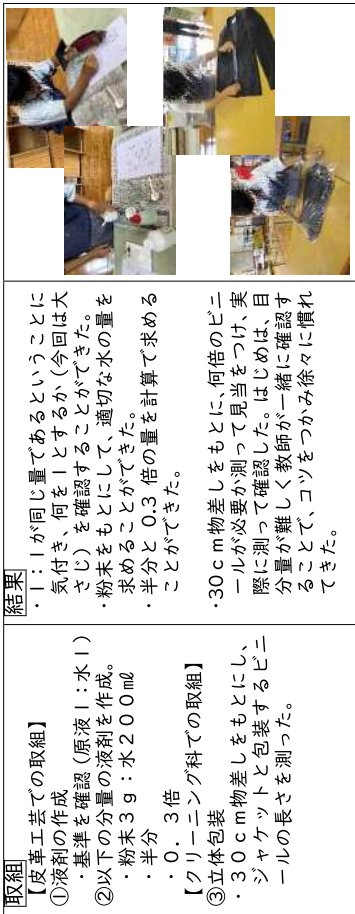 取組
【皮革工芸での取組】
①液剤の作成
・基準を確認（原液１：水１）
②以下の分量の液剤を作成。
・粉末３ｇ：水２００㎖
・半分
・０．３倍
【クリーニング科での取組】
③立体包装
・３０ｃｍ物差しをもとにし、
ジャケットと包装するビニ
ールの長さを測った。
結果
・１：１が同じ量であるということに
気付き、何を１とするか（今回は大
さじ）を確認することができた。
・粉末をもとにして、適切な水の量を
求めることができた。
・半分と０.３倍の量を計算で求める
ことができた。
・３０ｃｍ物差しをもとに、何倍のビニ
ールが必要か測って見当をつけ、実
際に測って確認した。はじめは、目
分量が難しく教師が一緒に確認す
ることで、コツをつかみ徐々に慣れ
てきた。